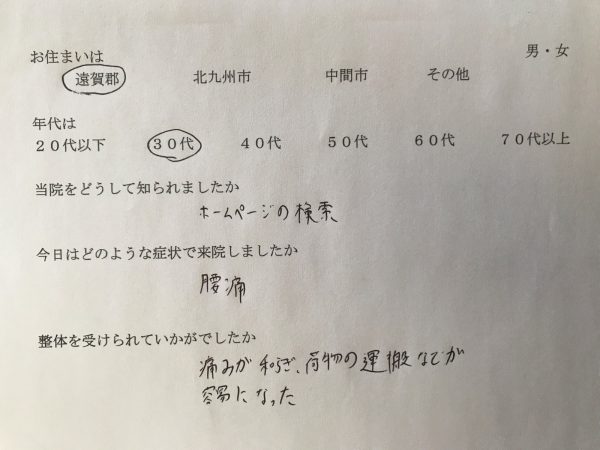 お住まいは
男・女
遠賀郡 北九州市 中間市 その他
年代は
20代以下 30代 40代 50代 60代 70代以上
当院をどうして知られましたか
ホームページの検索
今日はどのような症状で来院しましたか
腰痛
整体を受けられていかがでしたか
痛みが和らぎ、荷物の運搬などが
容易になった